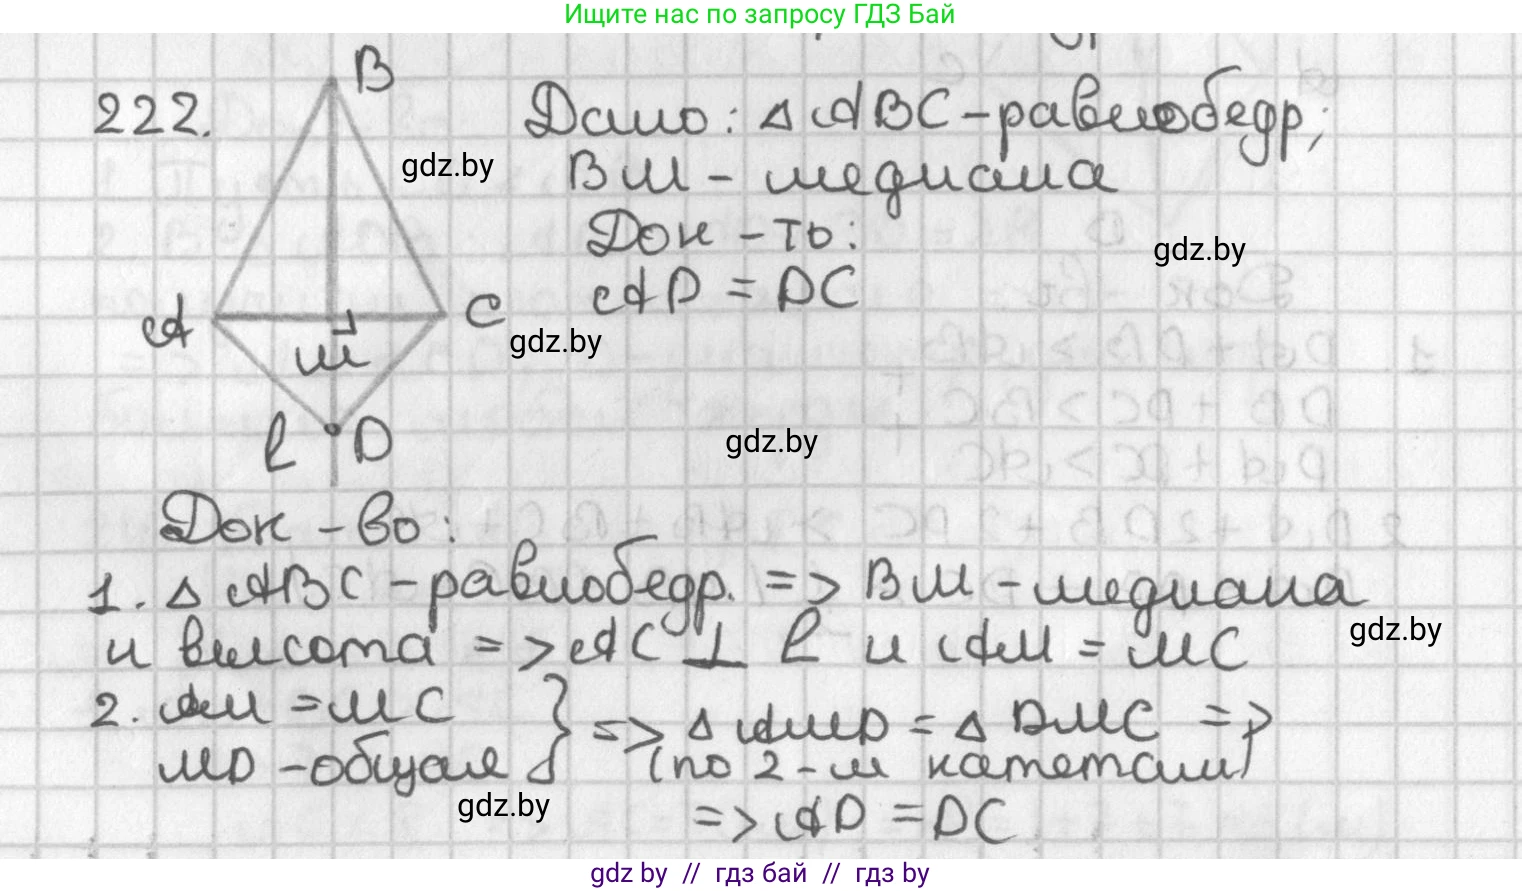 Ищите нас по запросу ГДЗ Бай
222.
B
A
C
M
l
D
Дано: △ABC-равнобедр;
BM - медиана
Док-ть:
AD = DC
gdz.by
gdz.by
gdz.by
gdz.by
Док-во:
1. △ABC-равнобедр. => BM-медиана
и высота => AC ⊥ l и AM = MC
gdz.by
2. AM = MC
MD-общая } => △AMD = △DMC =>
(по 2-м катетам)
gdz.by
=> AD = DC
gdz by // гдз бай // гдз by